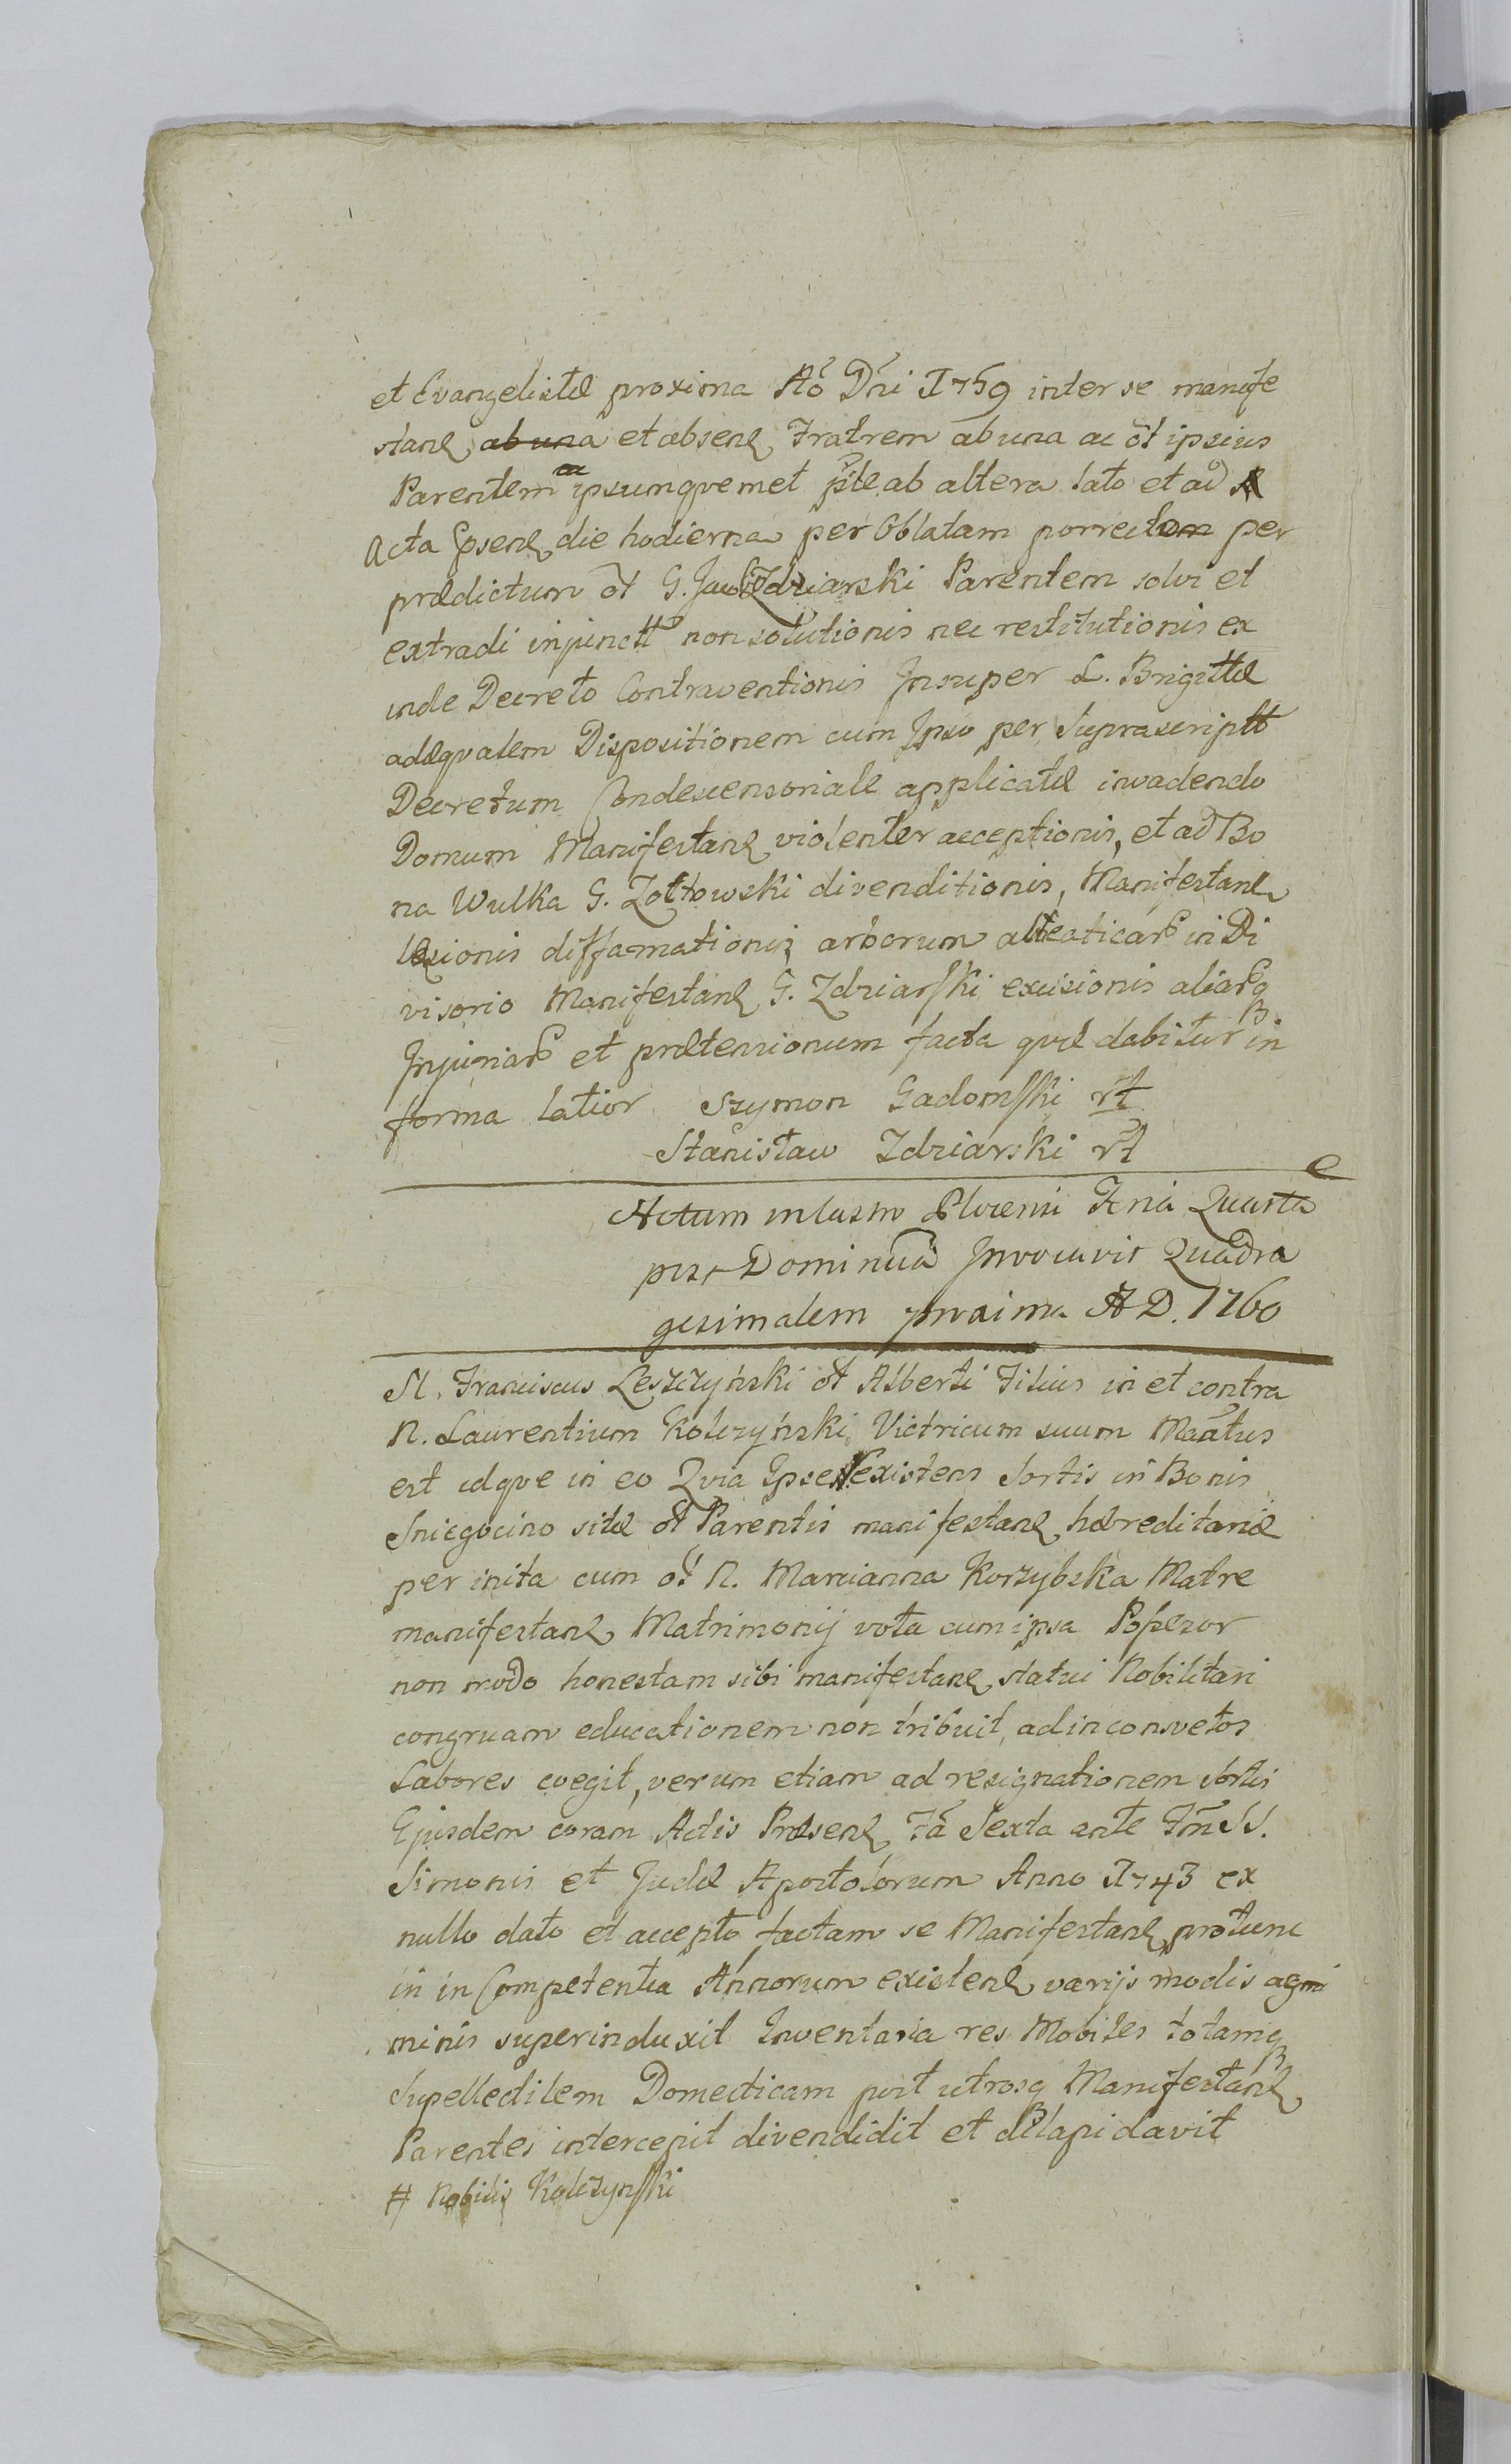 et Evangelistæ proxima Aõ Dñi 1759 inter se manife
stanꝭ ab una et absenꝭ Fratrem ab una ac ol̃ ipsius
Parentem ac ipsumqvemet p̃te ab altera lato et ad
Acta Ipsenꝭ die hodierna per Oblatam porrectum per
prædictum ol̃ G. Jacob Zdziarski Parentem solvi et
extradi injunctt non solutionis nec restitutionis ex
inde Decreto Contraventionis Insuper L. Brigittæ
adæqvatem Dispositionem cum Ipso per Suprascriptt
Decretum Condescensoriale applicatæ invadendo
Domum Manifestanꝭ violenter acceptionis, et ad Bo
na Wulka G. Zołtowski divenditionis, Manifestanꝭ
læsionis diffamationis arborum alveaticarꝭ in Di
visorio Manifestanꝭ G. Zdziarſki excisionis aliarꝭq
Injuriarꝭ et prætensionum facta qvæ dabitur in
forma latior. Szymon Gadomſki rł
Stanisław Zdziarski rł
Actum in Castro Plocensi Feria Quarta
post Dominicā Invocavit Quadra
gesimalem proxima A D. 1760
N. Franciscus Leszczyński ol̃ Alberti Filius in et contra
N. Laurentium Kolczyński Victricum suum Mañtus
est idqve in eo Qvia Ipse # existens Sortis in Bonis
Sniegocino sitæ ol̃ Parentis manifestanꝭ hæreditariæ
per inita cum ol̃ N. Marcianna Korzybska Matre
manifestanꝭ Matrimonij vota cum ipsa Possesor
non modo honestam sibi manifestanꝭ statui Nobilitari
congruam educationem non tribuit, ad inconsvetos
Labores coegit, verum etiam ad resignationem Sortis
Ejusdem coram Actis Præsenꝭ Fã Sexta ante Fm̃ SS.
Simonis et Judæ Apostolorum Anno 1743 ex
nullo dato et accepto factam se Manifestanꝭ protunc
in in Competentia Annorum existenꝭ varijs modis
minis superinduxit Inventaria res Mobiles totamq
Supellectilem Domesticam post utrosq Manifestanꝭ
Parentes intercepit divendidit et dilapidavit
# Nobilis Kolczynſki